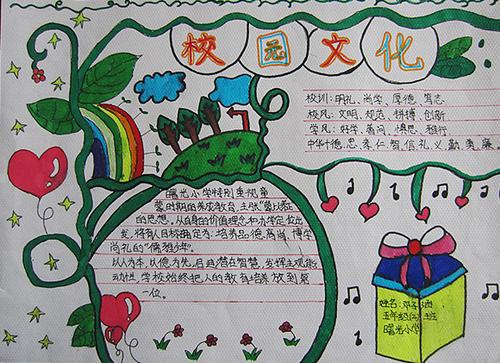 校园文化
校训:明礼、尚学、厚德、笃志
校风:文明、规范、拼搏、创新
学风:好学、善问、慎思、雅行
中华十德:忠孝仁智信礼义勤勇廉
曙光小学特别重视童
蒙时期的养成教育,主张“蒙以养正”
的思想。从自身的价值理念和办学定位出
发,将育人目标确定为:培养品德高尚、博学
尚礼的“儒雅少年”。
以人为本,以德为先,启迪潜在智慧,发挥主观能
动性,学校始终把人的教育培养放到第
一位。
姓名:邓
五年级 班
曙光小学